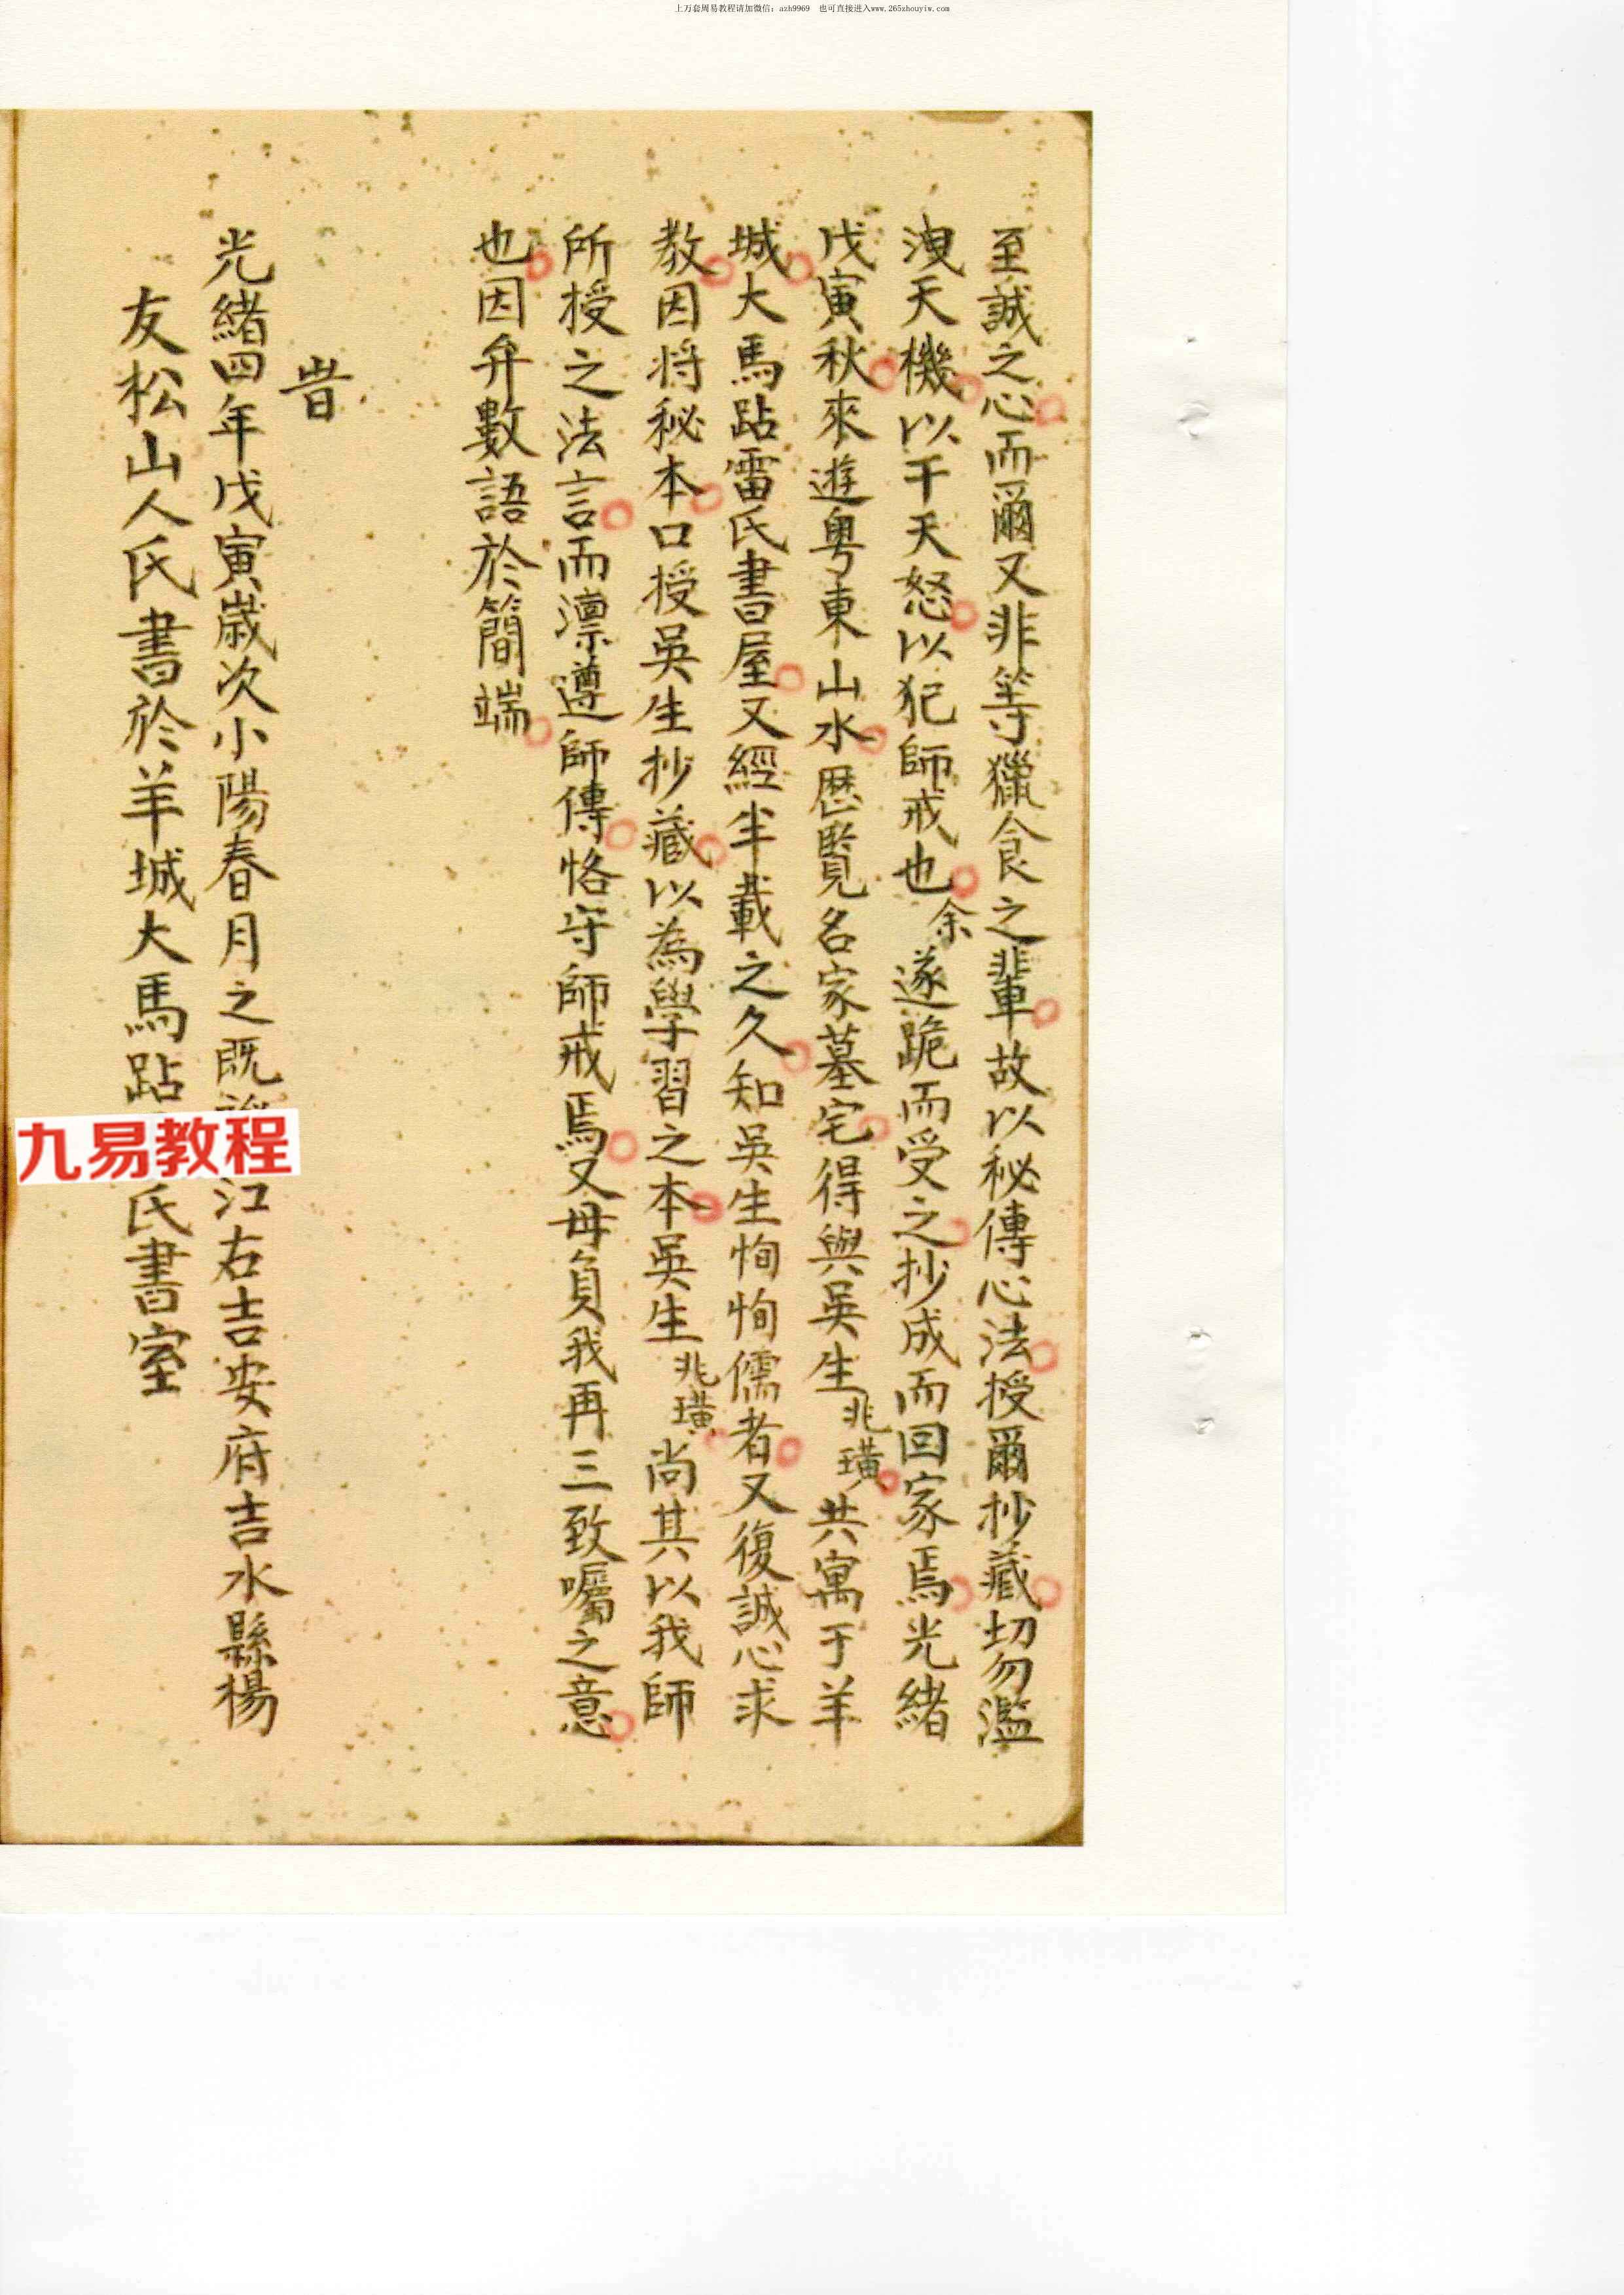 上万套周易教程请加微信：azh9969 也可直接进入www.265zhouyiw.com
至誠之心而爾又非等獵食之輩故以秘傳心法授爾抄藏切勿濫
洩天機以干天怒以犯師戒也余遂跪而受之抄成而回家焉光緒
戊寅秋來遊粵東山水歷覽名家墓宅得與吳生兆璜共寓于羊
城大馬跕雷氏書屋又經半載之久知吳生恂恂儒者又復誠心求
教因将秘本口授吳生抄藏以為學習之本吳生兆璜尚其以我師
所授之法言而凛遵師傳恪守師戒焉又毋負我再三致囑之意
也因弁數語於簡端
旹
光緒四年戊寅歲次小陽春月之既江右吉安府吉水縣楊
友松山人氏書於羊城大馬跕氏書室
九易教程